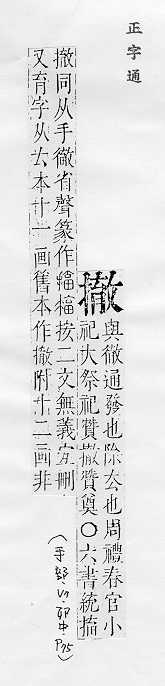 正字通
撤
與徹通發也除去也周禮春官小
祀大祭祀贊撤贊奠〇六書統揊
撤同从手徹省聲篆作揊楅按二文無義宜刪
又育字从𠫓本十一画舊本作撤附十二画非
(手部, V1, 卯中, P75)